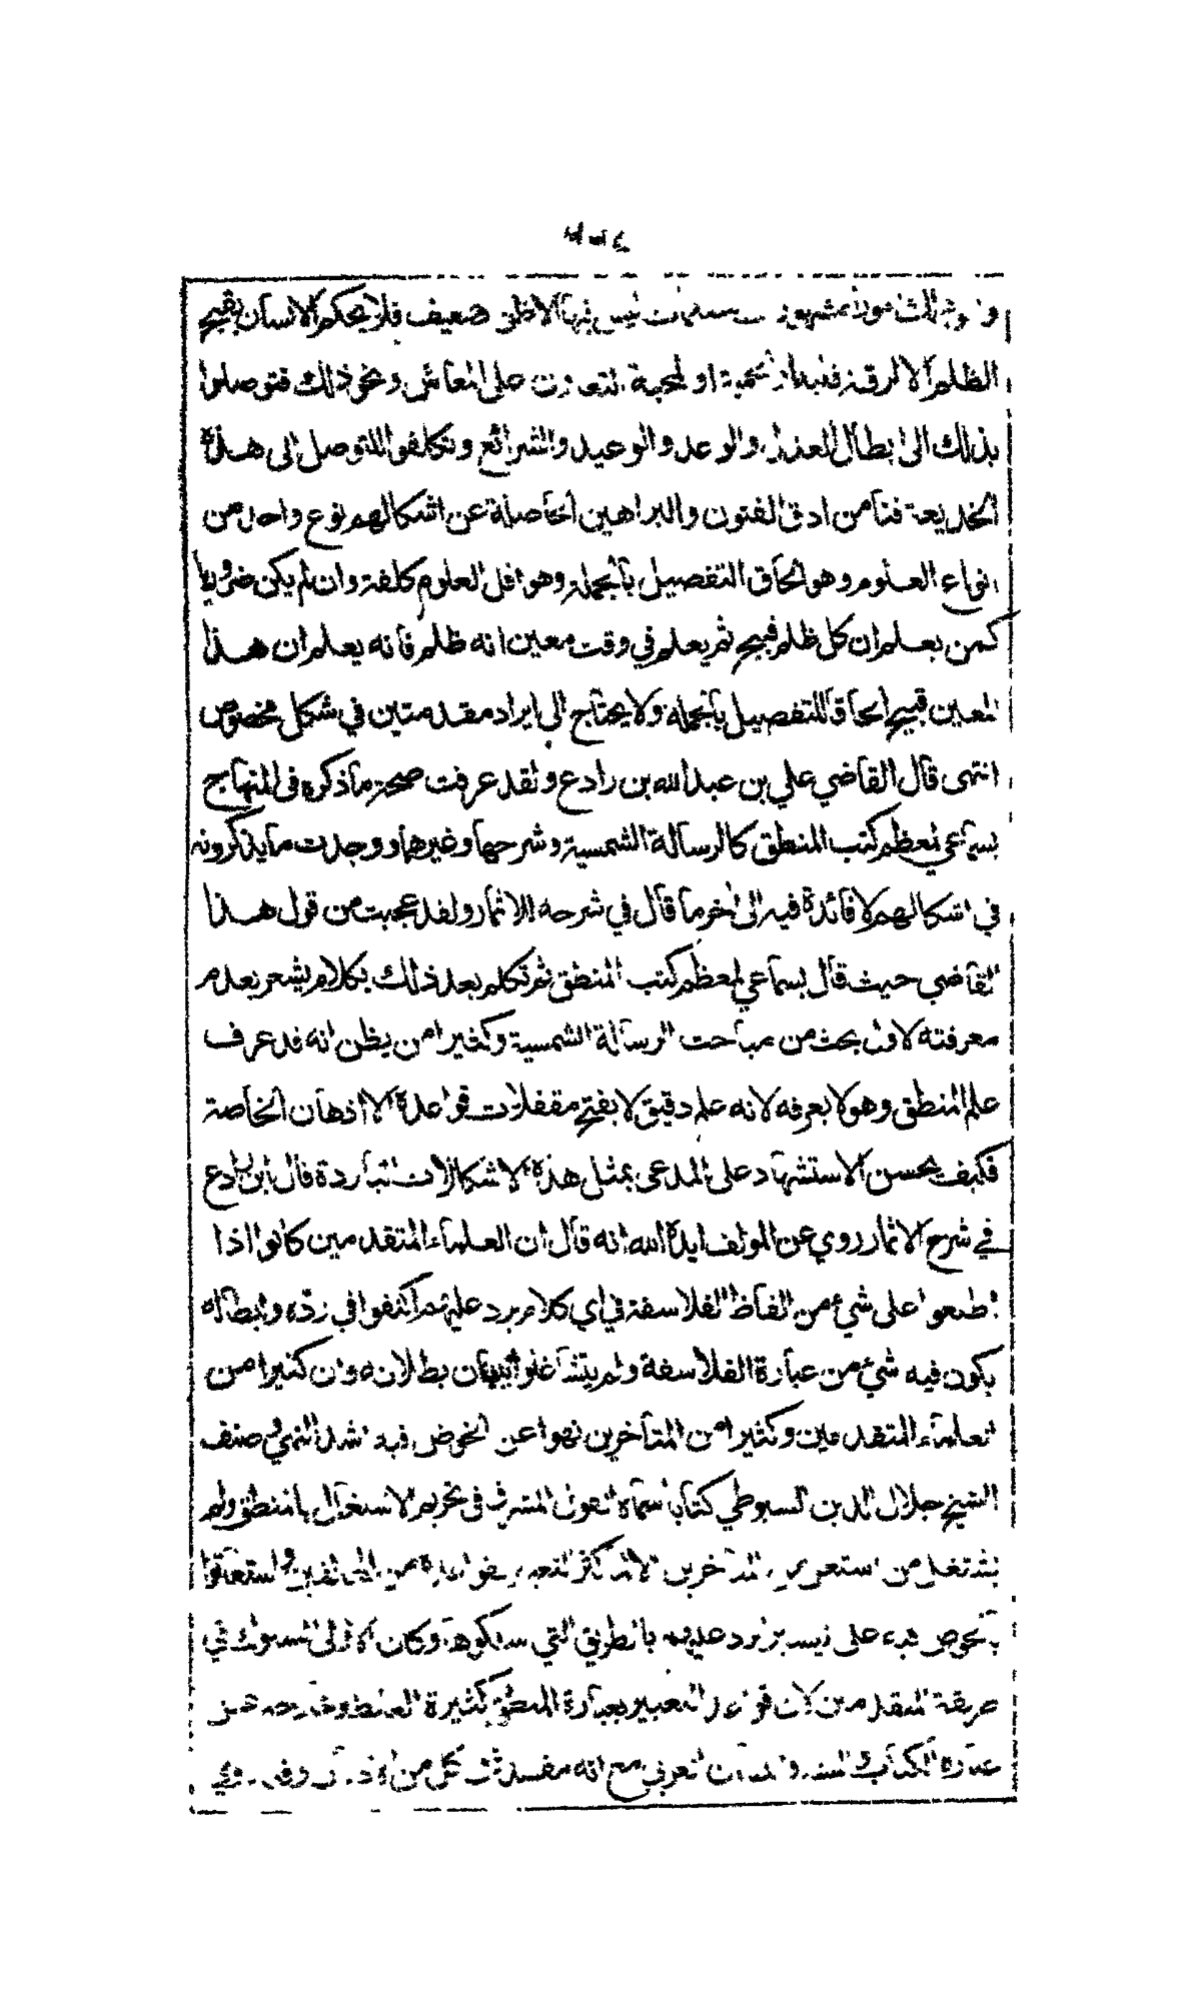 ضعيف فلا يحكم الانسان بقبح
الظلم الا لرقة او لمحبة التعاون على المعاش ونحو ذلك فتوصلوا
بذلك الى ابطال العذاب والوعد والوعيد والشرائع وتكلفوا للتوصل الى هذه
الخديعة فنا من ادق الفنون والبراهين الحاصلة عن اشكالهم نوع واحد من
انواع العلوم وهو الحاق التفصيل بالجملة وهو اقل العلوم كلفة وان لم يكن ضروريا
كمن يعلم ان كل ظلم قبيح ثم يعلم في وقت معين انه ظلم فانه يعلم ان هذا
المعين قبيح الحاقا للتفصيل بالجملة ولا يحتاج الى ايراد مقدمتين في شكل مخصوص
انتهى قال القاضي علي بن عبد الله بن رادع ولقد عرفت صحة ما ذكره في المنهاج
بسماعي لمعظم كتب المنطق كالرسالة الشمسية وشرحها وغيرها ووجدت ما يذكرونه
في اشكالهم لا فائدة فيه الى اخر ما قال في شرحه الاثمار ولقد عجبت من قول هذا
القاضي حيث قال بسماعي لمعظم كتب المنطق ثم تكلم بعد ذلك بكلام يشعر بعدم
معرفته لاول بحث من مباحث الرسالة الشمسية وكثيرا من يظن انه قد عرف
علم المنطق وهو لا يعرفه لانه علم دقيق لا يفتح مقفلات قواعده الا اذهان الخاصة
فكيف يحسن الاستشهاد على المدعى بمثل هذه الاشكالات الباردة قال ابن رادع
في شرح الاثمار روي عن المؤلف ايده الله انه قال ان العلماء المتقدمين كانوا اذا
اطلعوا على شيء من الفاظ الفلاسفة في اي كلام يرد عليهم اكتفوا في رده وابطاله
بكون فيه شيء من عبارة الفلاسفة ولم يتشاغلوا ببيان بطلانه وان كثيرا من
العلماء المتقدمين وكثيرا من المتأخرين نهوا عن الخوض فيه اشد النهي وصنف
الشيخ جلال الدين السيوطي كتابا سماه القول المشرق في تحريم الاشتغال بالمنطق ولم
يشتغل من المتأخرين الا لما كثر التعبير من المخالفين واستعانوا
بالخوض فيه على ليرد عليهم بالطريق التي سلكوها وكان الاولى السلوك في
طريقة المتقدمين لان التعبير بعبارة المنطق كثيرة الغلط
عبارة الكتاب العربي مع انه مفسدة لكل من